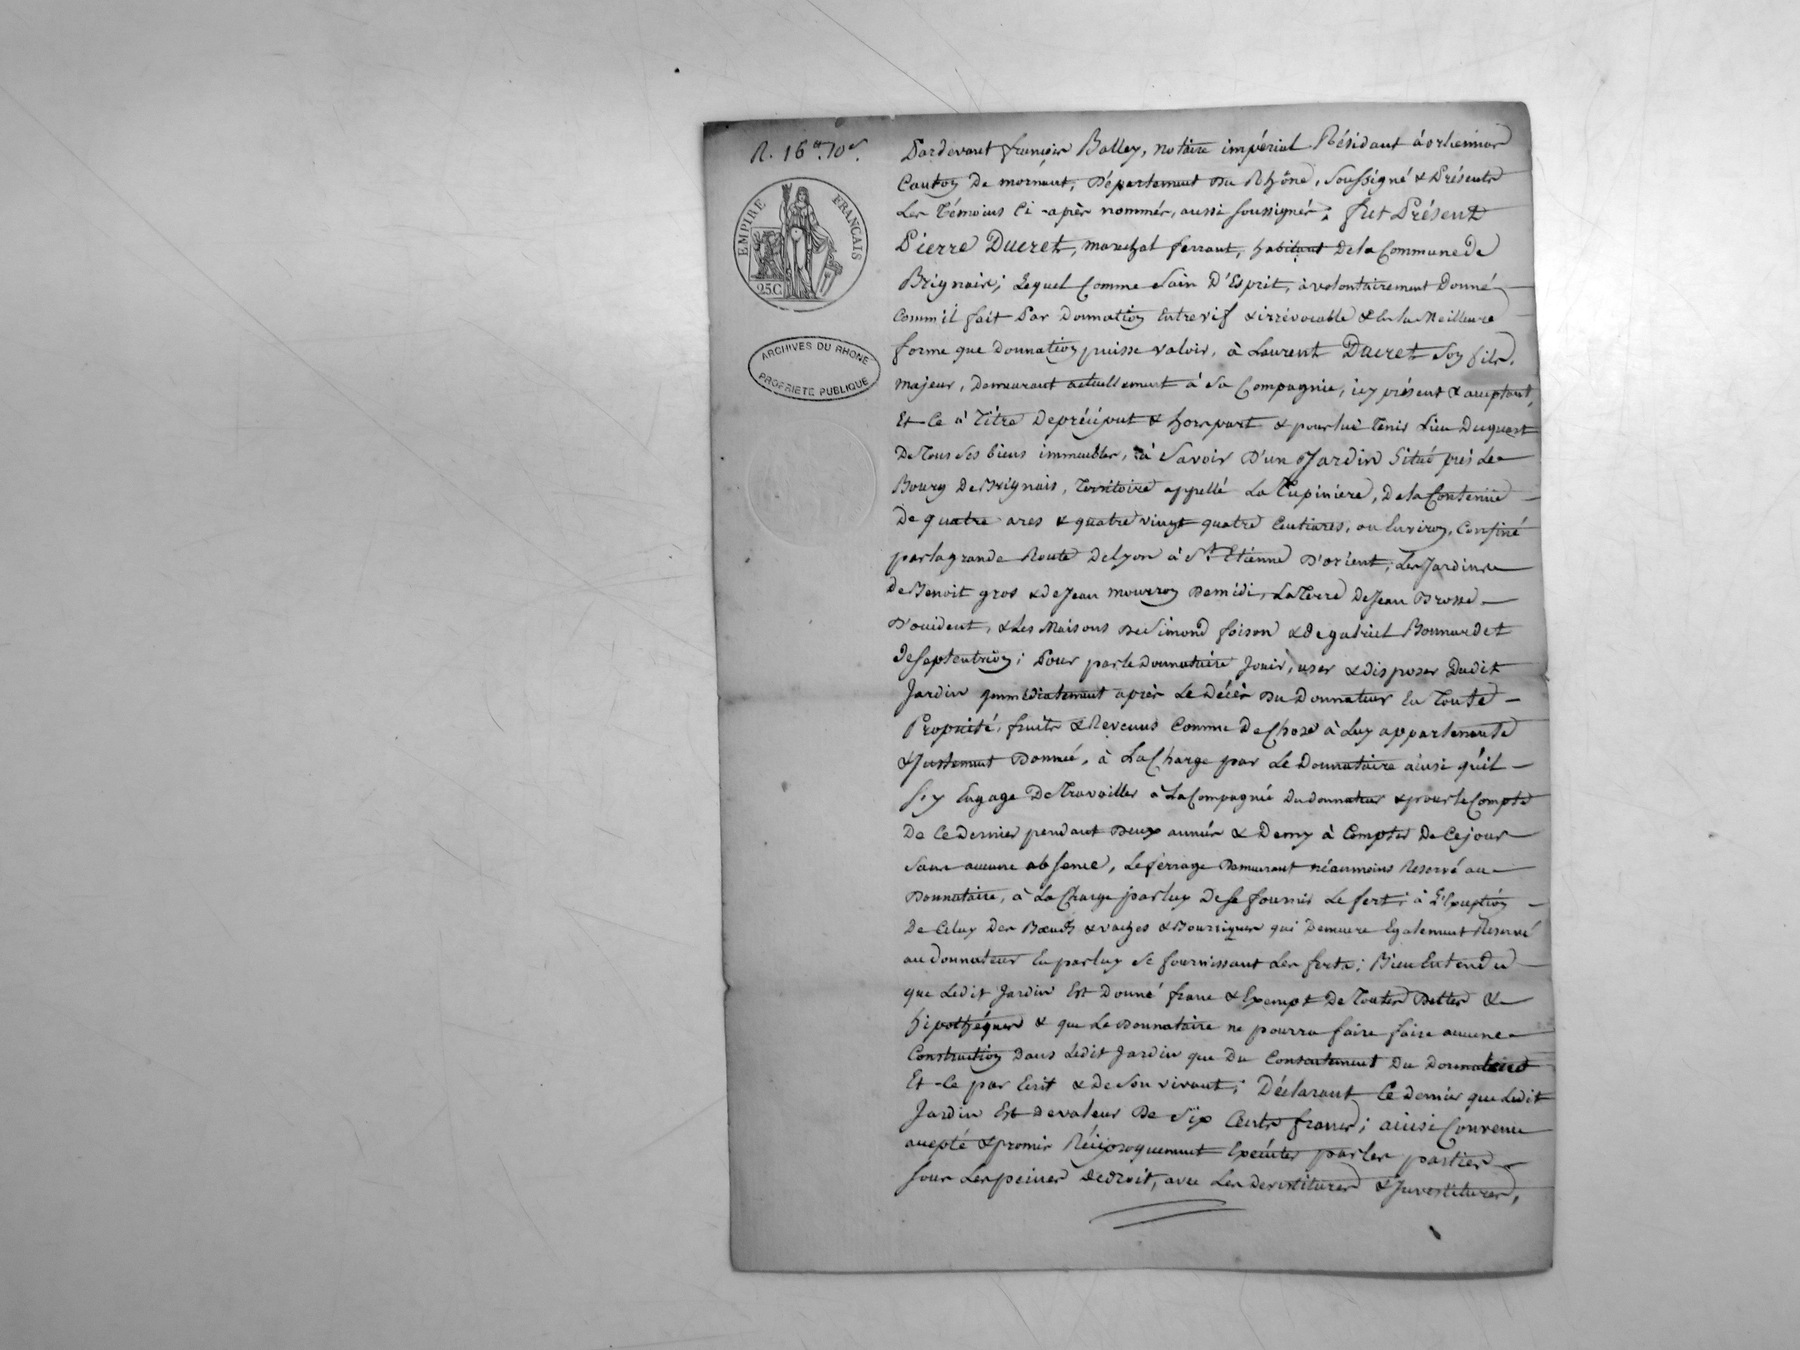 R. 16 a.t 10 s.
EMPIRE FRANÇAIS
25.C.
ARCHIVES DU RHONE
PROPRIETE PUBLIQUE
Pardevant françois Balley, notaire impérial Résidant à orlienas
Canton De mornant, Département Du Rhône, Soussigné & Présents
Les Témoins Ci-après nommés, aussi soussignés; fut Présent
Pierre Ducret, marechal ferrant, habitant De la Commune De
Brignais; Lequel Comme Sain D'Esprit, à volontairement Donné
Comm'il fait Par Donnation Entrevif & irrévocable & En la Meilleure
forme que donnation puisse valoir, à Laurent Ducret Son fils,
majeur, Demeurant actuellement à Sa Compagnie, icy présent & acceptant,
Et Ce à Titre De préciput & hors part & pour lui Tenir Lieu Du quart
De Tous Ses biens immeubles, à Savoir D'un Jardin Situé près Le
Bourg De Brignais, Territoire appellé La Pupiniere, De la Contenüe
De quatre ares & quatre vingt quatre Centiares, ou Environ, Confiné
par la grande Route De Lyon à St. Etienne D'orient; Les Jardins
de Benoit gros & de Jean mouvron De midi, La Terre De Jean Brosse
D'occident, & Les Maisons De Simond foison & De gabriel Bonnardet
De septentrion; Pour par le Donnataire Jouir, user & disposer Dudit
Jardin immédiatement après Le Décès Du Donnateur En Toute
Propriété, fruits & Revenus Comme De Chose à Luy appartenante
& Justement Donnée, à La Charge par Le Donnataire ainsi qu'il
S'y Engage De Travailler à La Compagnie du donnateur & pour le Compte
De Ce Dernier pendant Deux années & Demy à Compter De Ce jour
Sans aucune absence, Le ferrage Demeurant néanmoins Reservé au
Donnataire, à La Charge par luy De se fournir Le fert; à L'Exception
De Celuy Des Bœufs & vaches & Bourriques qui Demeure Egalement Reservé
au Donnateur En par luy se fournissant Les ferts; Bien Entendu
que Ledit Jardin Est Donné franc & Exempt De Toutes Dettes &
hipothéques & que Le Donnataire ne pourra faire faire aucune
Construction Dans Ledit Jardin que Du Consentement Du Donnateur
Et Ce par Ecrit & De Son vivant; Déclarant Ce Dernier que Ledit
Jardin Est De valeur De Six Cents francs; ainsi Convenu
accepté & promis Réciproquement Exécuter par les parties
Sous Les peines De droit, avec Les Devestitures & Investitures,